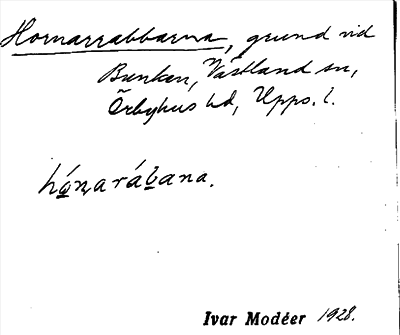 Hornarrabbarna, grund vid
Bunken, Västland sn,
Örbyhus hd, Upps. l.
hó̱ṇarába̱na.
Ivar Modéer 1928.